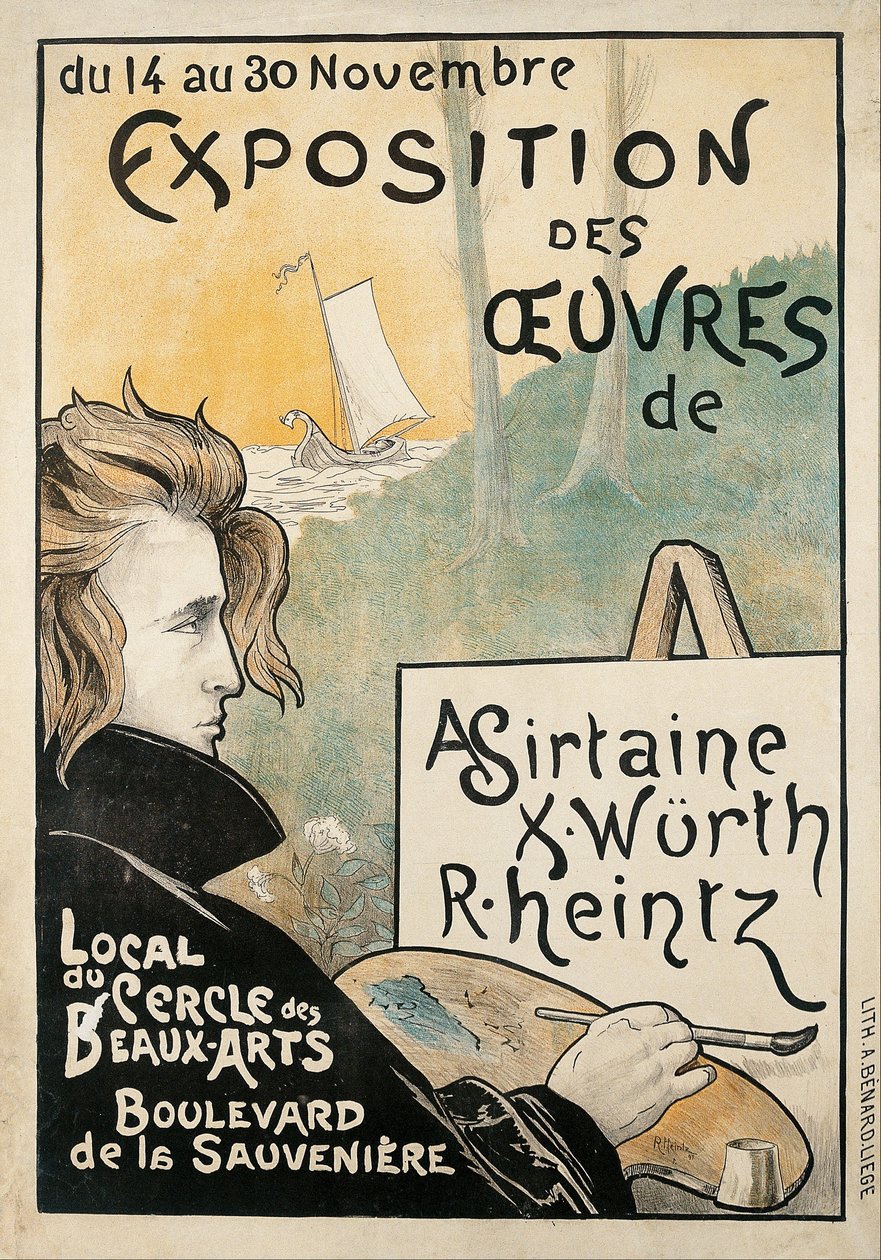 du 14 au 30 Novembre
EXPOSITION
DES
ŒUVRES
de
A Sirtaine
X. Würth
R. heintz
LOCAL
du CERCLE des
BEAUX-ARTS
BOULEVARD
de la SAUVENIÈRE
R. Heintz
LITH. A. BÈNARD. LIEGE